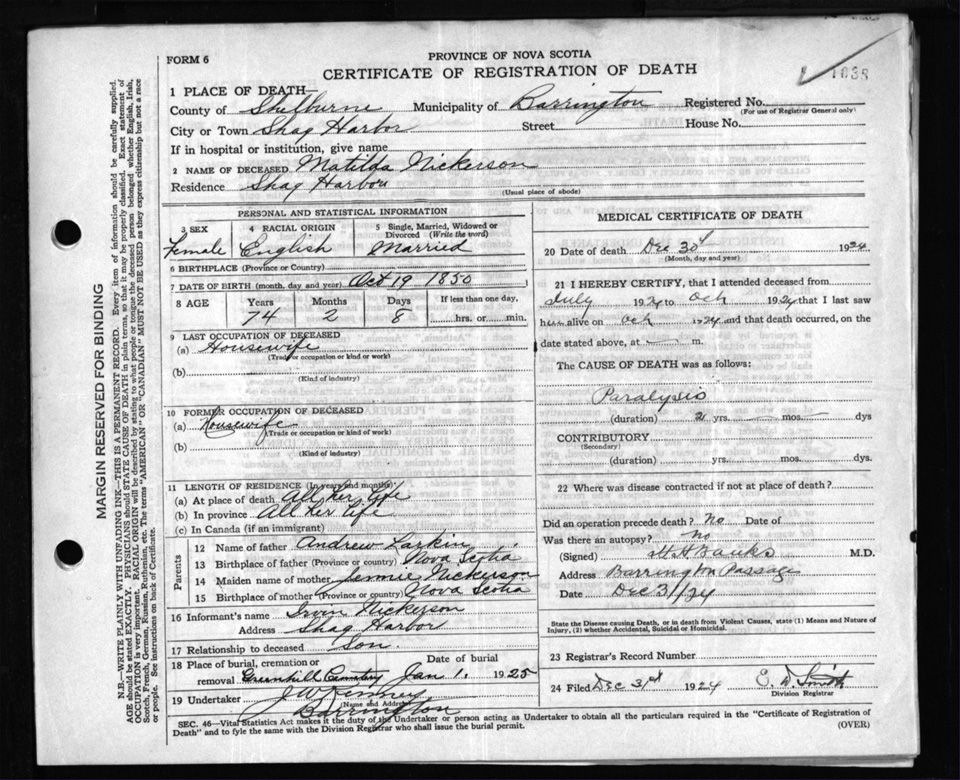 FORM 6
PROVINCE OF NOVA SCOTIA
CERTIFICATE OF REGISTRATION OF DEATH
1 PLACE OF DEATH
County of Shelburne Municipality of Barrington Registered No.
(For use of Registrar General only)
City or Town Shag Harbor Street House No.
If in hospital or institution, give name
2 NAME OF DECEASED Matilda Nickerson
Residence Shag Harbor
(Usual place of abode)
PERSONAL AND STATISTICAL INFORMATION
3 SEX Female
4 RACIAL ORIGIN English
5 Single, Married, Widowed or Divorced (Write the word) Married
6 BIRTHPLACE (Province or Country)
7 DATE OF BIRTH (month, day and year) Oct 19 1850
8 AGE Years 74 Months 2 Days 8 If less than one day, hrs. or min.
9 LAST OCCUPATION OF DECEASED
(a) Housewife
(Trade or occupation or kind or work)
(b)
(Kind of industry)
10 FORMER OCCUPATION OF DECEASED
(a) Housewife
(Trade or occupation or kind or work)
(b)
(Kind of industry)
11 LENGTH OF RESIDENCE (In years and months)
(a) At place of death All her life
(b) In province All her life
(c) In Canada (if an immigrant)
Parents
12 Name of father Andrew Larkin
13 Birthplace of father (Province or country) Nova Scotia
14 Maiden name of mother Jennie Nickerson
15 Birthplace of mother (Province or country) Nova Scotia
16 Informant's name Irvin Nickerson
Address Shag Harbor
17 Relationship to deceased Son.
18 Place of burial, cremation or removal Greenhill Cemetery Date of burial Jan 1. 1925
19 Undertaker J W Kenney
(Name and Address)
Barrington
MEDICAL CERTIFICATE OF DEATH
20 Date of death Dec 30 1924
(Month, day and year)
21 I HEREBY CERTIFY, that I attended deceased from
July 1924 to Och 1924 that I last saw
h alive on och 1924 and that death occurred, on the
date stated above, at — m.
The CAUSE OF DEATH was as follows:
Paralysis
(duration) 2 yrs. — mos. — dys
CONTRIBUTORY
(Secondary)
(duration) yrs. mos. dys.
22 Where was disease contracted if not at place of death?
Did an operation precede death? No Date of
Was there an autopsy? No
(Signed) Banks M.D.
Address Barrington Passage
Date Dec 31/24
State the Disease causing Death, or in death from Violent Causes, state (1) Means and Nature of
Injury, (2) whether Accidental, Suicidal or Homicidal.
23 Registrar's Record Number
24 Filed Dec 31st 1924 E. D. Smith
Division Registrar
SEC. 46—Vital Statistics Act makes it the duty of the Undertaker or person acting as Undertaker to obtain all the particulars required in the "Certificate of Registration of
Death" and to fyle the same with the Division Registrar who shall issue the burial permit.
(OVER)
MARGIN RESERVED FOR BINDING
N.B.—WRITE PLAINLY WITH UNFADING INK—THIS IS A PERMANENT RECORD. Every item of information should be carefully supplied.
AGE should be stated EXACTLY. PHYSICIANS should STATE CAUSE OF DEATH in plain terms, so that it may be properly classified. Exact statement of
OCCUPATION is very important. RACIAL ORIGIN will be described by stating to what people or tongue the deceased person belonged whether English, Irish,
Scotch, French, German, Russian, Ruthenian, etc. The terms "AMERICAN" OR "CANADIAN" MUST NOT BE USED as they express citizenship but not a race
or people. See instructions on back of Certificate.